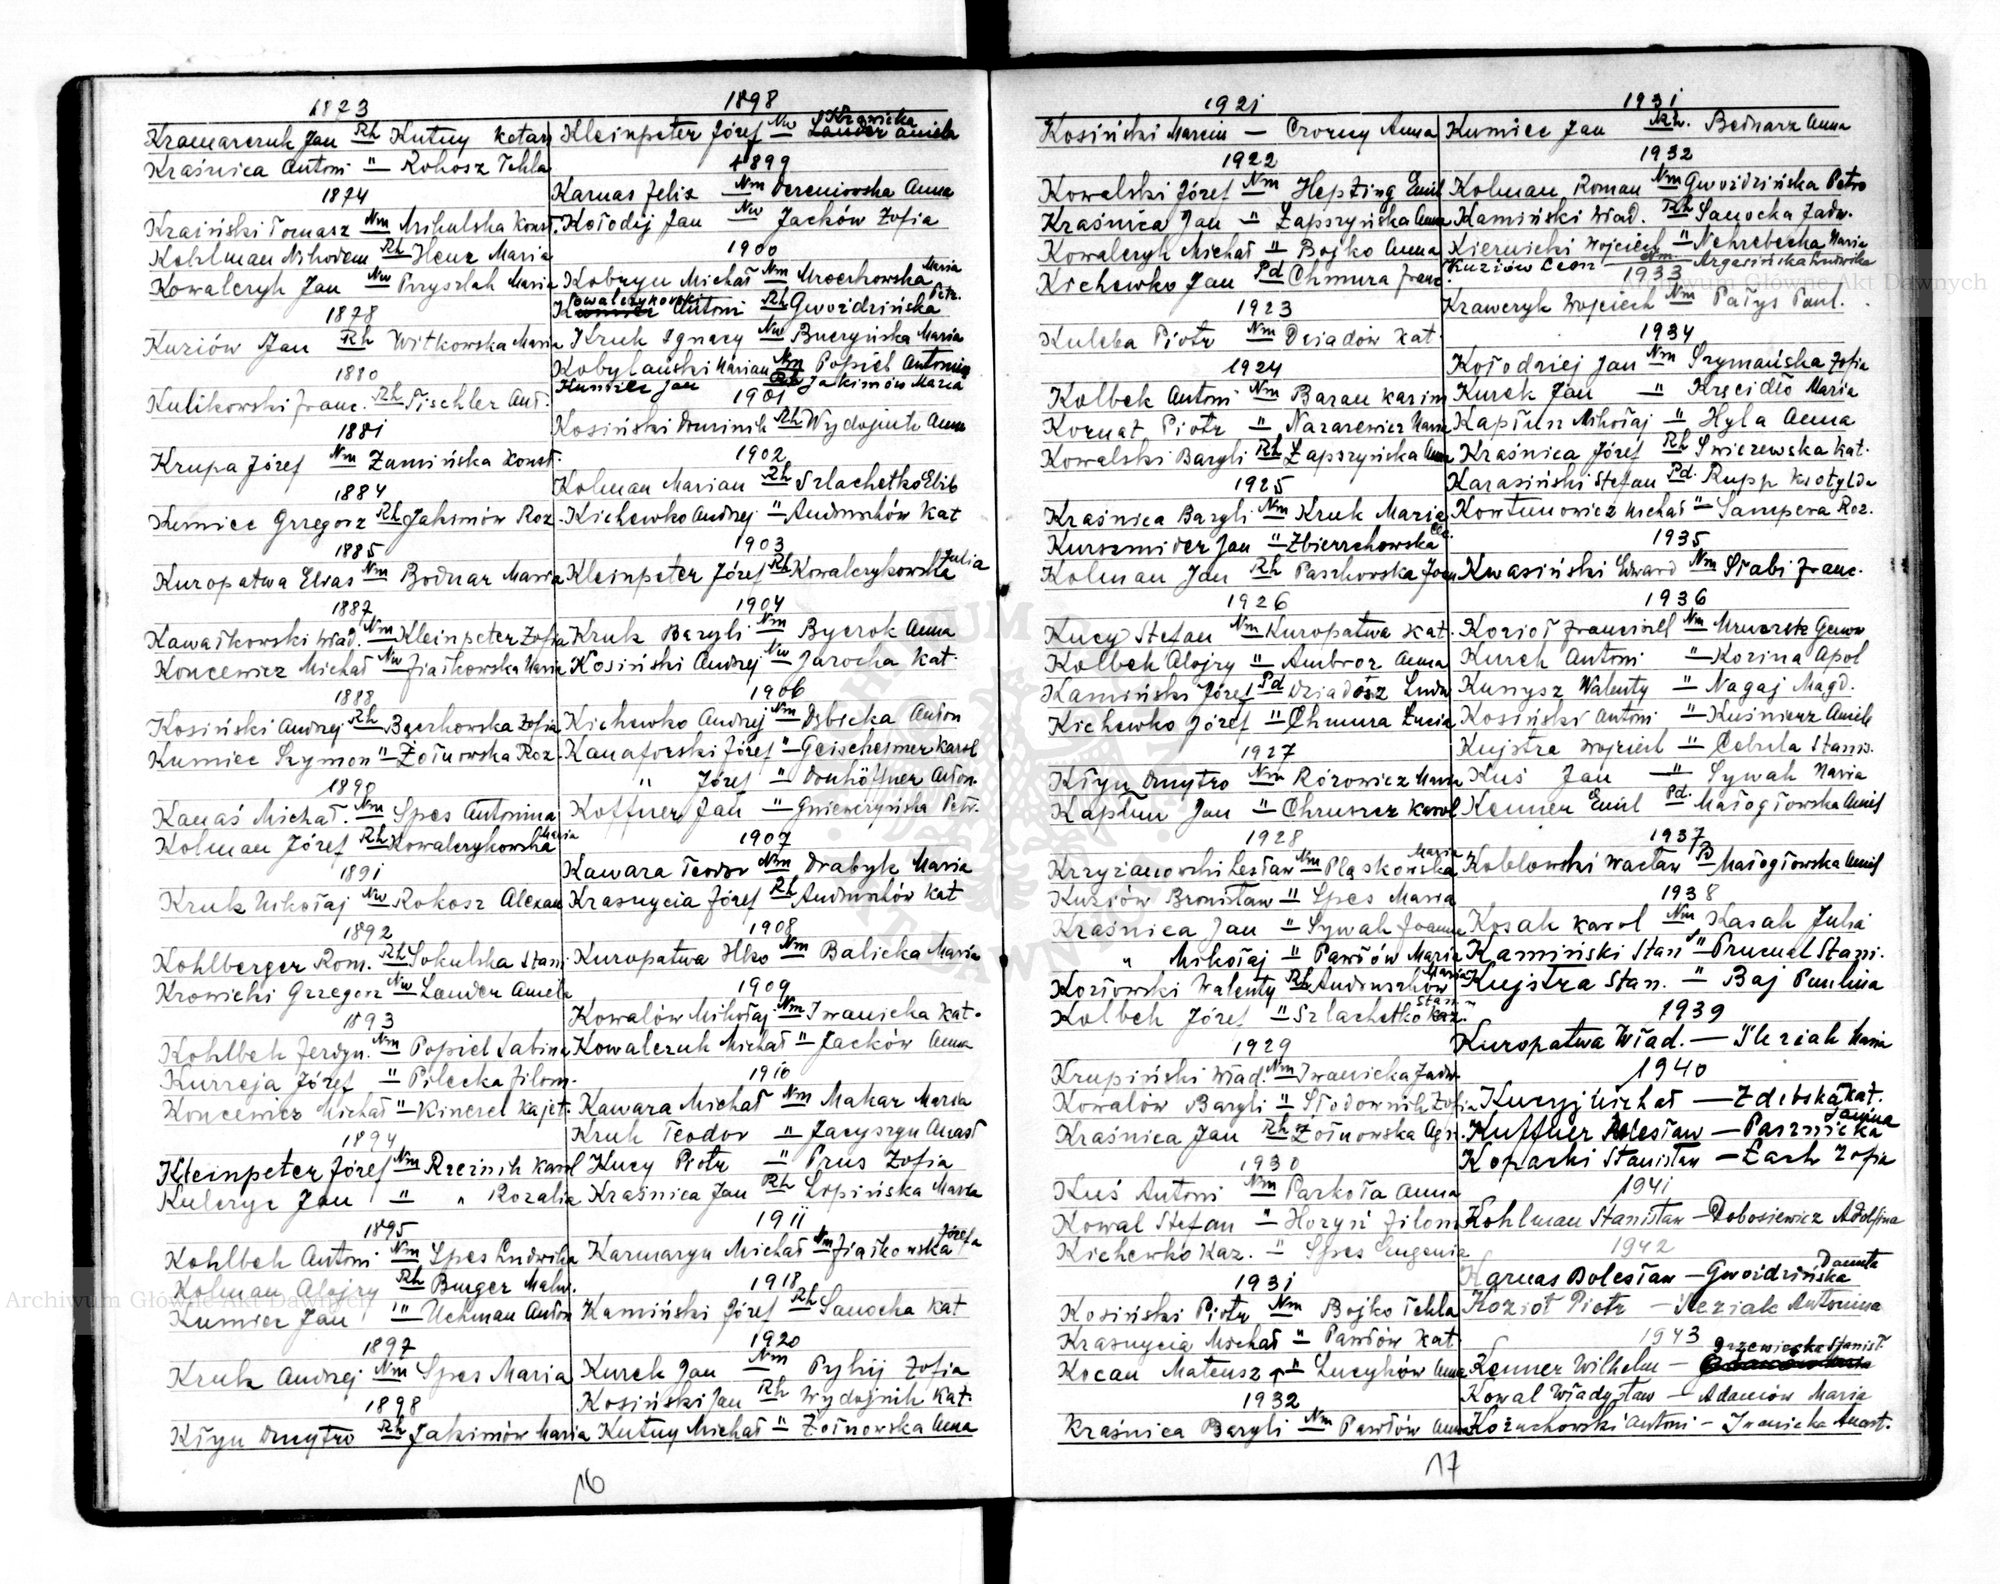 1873
Kramarczuk Jan Rh Kutny Katarz
Kraśnica Antoni " Rokosz Tekla
1874
Kraiński Tomasz Nm Mikulska Konst.
Kohlman Nikodem Rh Henc Maria
Kowalczyk Jan Nw Przyszlak Maria
1878
Kuziów Jan Rh Witkowska Maria
1880
Kulikowski Franc. Rh Tischler Ant.
1881
Krupa Józef Nm Zamińska Konst.
1884
Kumiec Grzegorz Rh Jakimów Roz.
1885
Kuropatwa Elias Nm Bodnar Maria
1887
Kawałkowski Wład. Nm Kleinpeter Zofia
Koncewicz Michał Nw Fiałkowska Maria
1888
Kosiński Andrzej Rh Bączkowska Zofia
Kumiec Szymon " Żołnowska Roz.
1890
Kanaś Michał Nm Spes Antonina
Kolman Józef Rh Kowalczykowska Maria
1891
Kruk Mikołaj Nw Rokosz Alexan
1892
Kohlberger Rom. Rh Sokulska Stani
Krowicki Grzegorz Nw Lander Amela
1893
Kohlbek Ferdyn. Nm Popiel Sabina
Kurreja Józef " Pilecka Filom.
Koncewicz Michał " Kincrel Kajet.
1894
Kleinpeter Józef Nm Rzeźnik Karol
Kulczyc Jan " " Rozalia
1895
Kohlbek Antoni Nm Spes Ludwika
Kolman Alojzy Rh Burger Malw.
Kumiec Jan " Uchman Anton
1897
Kruk Andrzej Nm Spes Maria
1898
Kłyn Dmytro Rh Jakimów Maria
16
1898
Kleinpeter Józef Nw Krowicka Amiela
1899
Karnas Felix Nm Dereniowska Anna
Kołodij Jan Nw Jacków Zofia
1900
Kobryn Michał Nm Mroczkowska Maria
Kowalczykowski Antoni Rh Gwoździńska Petr.
Kruk Ignacy Nw Buczyńska Maria
Kobylański Marian Nm Popiel Antonina
Kumiec Jan Rh Jakimów Maria
1901
Kosiński Dominik Rh Wydojnik Anna
1902
Kolman Marian Rh Szlachetko Elib
Kichewko Andrzej " Andruchów Kat
1903
Kleinpeter Józef Rh Kowalczykowska Julia
1904
Kruk Bazyli Nm Byczok Anna
Kosiński Andrzej Nw Jarocha Kat.
1906
Kichewko Andrzej Nm Dębicka Anton
Kanaforski Józef " Geischeimer Karol
" Józef " Donhöffner Anton.
Koffner Jan " Gniewczyńska Petr.
1907
Kawara Teodor Nm Drabyk Maria
Krasnycia Józef Rh Andruchów Kat
1908
Kuropatwa Ilko Nm Balicka Maria
1909
Kowalów Mikołaj Nm Iwanicka Kat.
Kowalczuk Michał " Jacków Anna
1910
Kawara Michał Nm Makar Maria
Kruk Teodor " Jacyszyn Anast
Kucy Piotr " Prus Zofia
Kraśnica Jan Rh Łopińska Maria
1911
Karmazyn Michał Nm Fiałkowska Józefa
1918
Kamiński Józef Rh Sanocka Kat
1920
Kurek Jan Nm Pyłyj Zofia
Kosiński Jan Rh Wydojnik Kat.
Kutny Michał " Żołnowska Anna
1921
Kosiński Marcin — Czorny Anna
1922
Kowalski Józef Nm Hepting Emil
Kraśnica Jan " Zapszyńska Anna
Kowalczyk Michał " Bojko Anna
Kichewko Jan Pd Chmura Franc.
1923
Kuleba Piotr Nm Dziadów Kat.
1924
Kolbek Antoni Nm Baran Kazim
Kornat Piotr " Nazarewicz Maria
Kowalski Bazyli Rh Zapszyńska Anna
1925
Kraśnica Bazyli Nm Kruk Maria
Kurszmider Jan " Zbierzchowska
Kolman Jan Rh Paszkowska Joan
1926
Kucy Stefan Nm Kuropatwa Kat.
Kolbek Alojzy " Ambroz Anna
Kamiński Józef Pd Dziadosz Ludw
Kichewko Józef " Chmura Lucia
1927
Kłyn Dmytro Nm Rózowicz Maria
Kapłun Jan " Chruszcz Karol
1928
Krzyżanowski Lesław Nm Pląskowska Maria
Kuziów Bronisław " Spes Maria
Kraśnica Jan " Sywak Joanna
" Mikołaj " Pawłów Maria
Kozłowski Walenty Rh Andruszków Maria
Kolbek Józef " Szlachetko Stan.
1929
Krupiński Wład. Nm Iwanicka Jadw.
Kowalów Bazyli " Słodownik Zofia
Kraśnica Jan Rh Żołnowska Agn.
1930
Kuś Antoni Nm Parkoła Anna
Kowal Stefan " Horyń Filom
Kichewko Kaz. " Spes Eugenia
1931
Kosiński Piotr Nm Bojko Tekla
Krasnycia Michał " Pawłów Kat
Kocan Mateusz " Lucyków Anna
1932
Kraśnica Bazyli Nm Pawłów Anna
1931
Kumiec Jan Rh. Bednarz Anna
1932
Kolman Roman Nm Gwoździńska Petro
Kamiński Wład. Rh Sanocka Jadw.
Kiernicki Wojciech " Nehrebecka Maria
Kuziów Leon — Nm — Argasińska Ludwika
1933
Krawczyk Wojciech Nm Patys Paul.
1934
Kołodziej Jan Nm Szymańska Zofia
Kurek Jan " Kręcidło Maria
Kapłun Mikołaj " Hyla Anna
Kraśnica Józef Rh Swiczewska Kat.
Karasiński Stefan Pd. Rupp Klotylda
Kortunowicz Michał " Sampera Roz.
1935
Kwasiński Edward Nm Słabi Franc.
1936
Kozioł Franciszek Nm Mruczek Genow
Kurek Antoni " Kozina Apol
Kunysz Walenty " Nagaj Magd.
Kosiński Antoni " Kuśnierz Aniela
Kujstra Wojciech " Cebula Stanis.
Kuś Jan " Sywak Maria
Kenner Emil Pd. Małogłowska Aniel
1937
Koblowski Wacław Pd Małogłowska Aniel
1938
Kosak Karol Nm Kasak Julia
Kamiński Stan " Prucnal Stani.
Kujstra Stan. " Baj Paulina
1939
Kuropatwa Wład. — Ślęziak Maria
1940
Kucyj Michał — Zdebska Kat.
Kuffner Bolesław — Pasznicka Janina
Koparki Stanisław — Łach Zofia
1941
Kohlman Stanisław — Dobosiewicz Adolfina
1942
Karnas Bolesław — Gwoździńska Danuta
Kozioł Piotr — Ślęziak Antonina
1943
Kenner Wilhelm — Grzewięska Stanisł
Kowal Władysław — Adamów Maria
Kożuchowski Antoni — Iwanicka Anast.
17
Archiwum Główne Akt Dawnych
Archiwum Główne Akt Dawnych